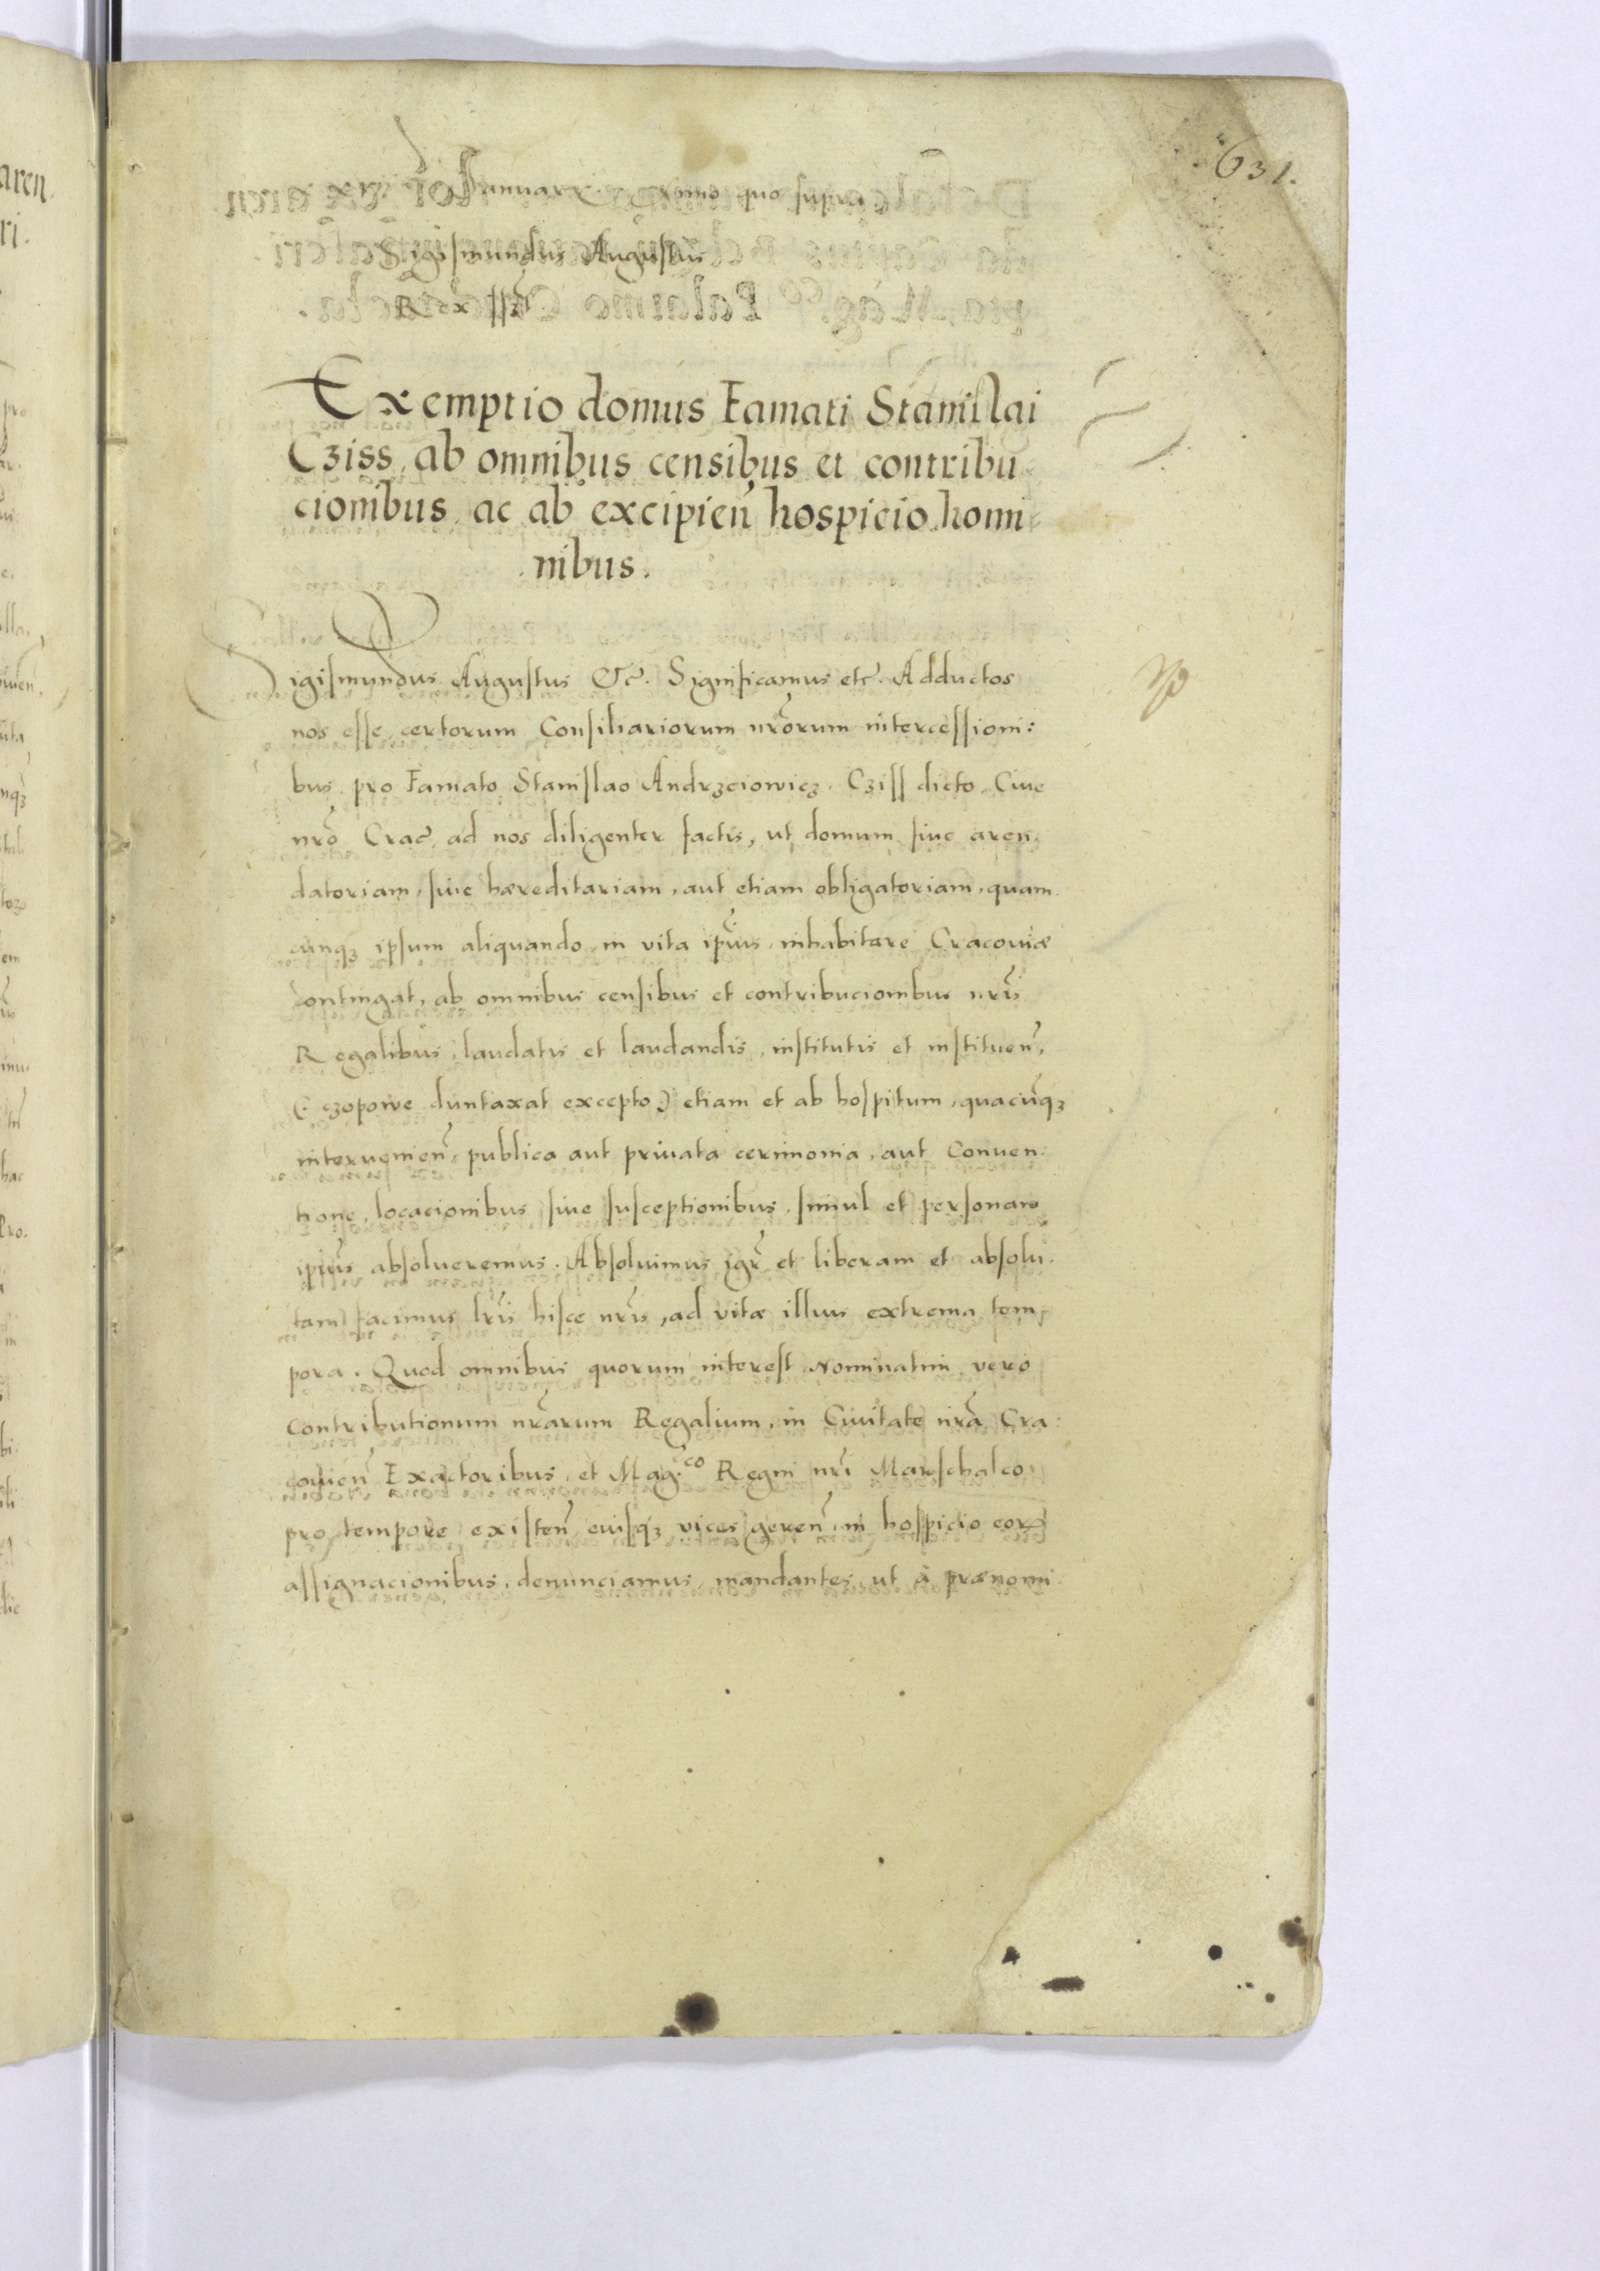 631.
Januarx. Anno quo supra
Sigismundus Augustus
Rex ſſt
Exemptio domus Famati Stanislai
Cziss, ab omnibus censibus et contribu
cionibus ac ab excipien̄ hospicio homi
nibus.
Sigismundus Augustus Etc̄. Significamus etc̄. Adductos
nos esse certorum Consiliariorum nrōrum intercessioni:
bus pro Famato Stanislao Andrzeiowicz. Cziss dicto Ciue
nrō Crac̄ ad nos diligenter factis, ut domum siue aren
datoriam, siue hæreditariam, aut etiam obligatoriam, quam
cunqꝫ ipsum aliquando in vita ipīus inhabitare Cracouiæ
contingat, ab omnibus censibus et contribucionibus nrīs
Regalibus, laudatis et laudandis, institutis et instituen̄,
(: czopowe duntaxat excepto:) etiam et ab hospitum, quacūqꝫ
interuenien̄ publica aut priuata cerimonia, aut Conuen
tione, locacionibus siue susceptionibus, simul et personam
ipīus absolueremus. Absoluimus igr̄ et liberam et absolu
tam facimus lrīs hisce nrīs, ad vitæ illius extrema tem
pora. Quod omnibus quorum interest Nominatim vero
Contributionum nrārum Regalium, in Ciuitate nrā Cra
couien̄ Exactoribus, et Mag.co Regni nrī Marschalco
pro tempore existen̄ eiusqꝫ vices geren̄, in hospicio eorꝝ
assignacionibus, denunciamus, mandantes, ut à prænomi